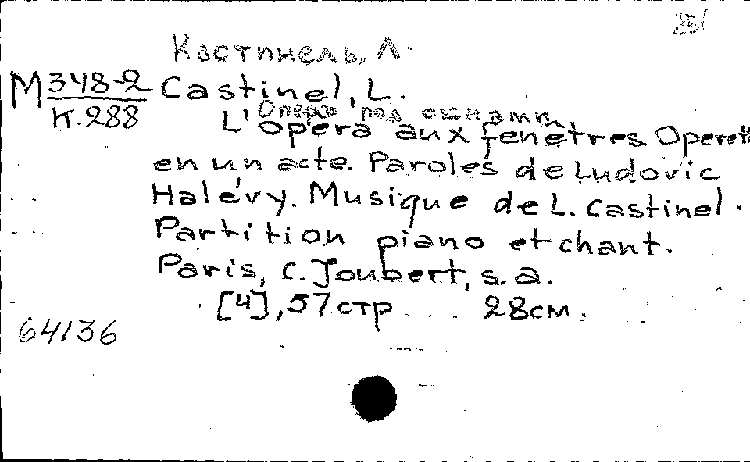 Кастинель, Л.
М 348-2 Castinel, L.
К.288
Опера под окнами
L'opéra aux fenêtres Operett
en un acte. Paroles de Ludovic
Halévy. Musique de L. Castinel.
Partition piano et chant.
Paris, C. Joubert, s.a.
[4], 57 стр 28 см.
64136